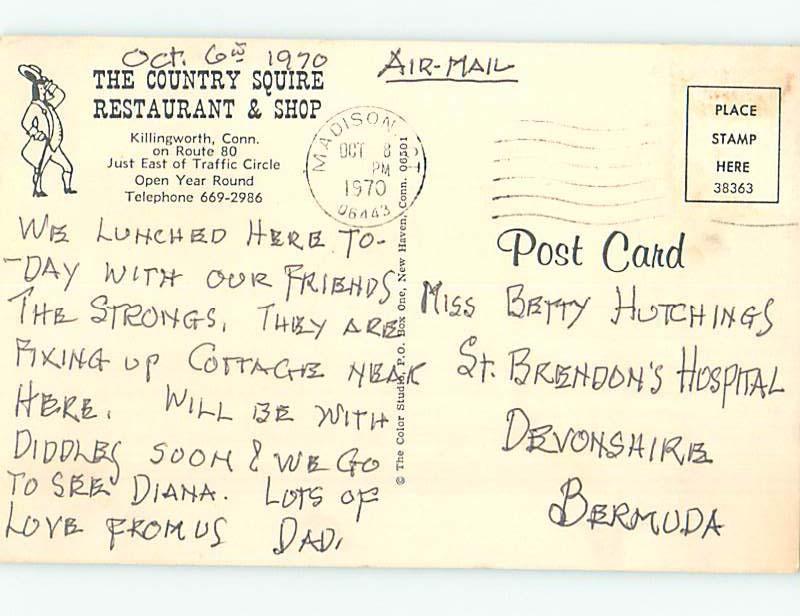 Oct. 6th 1970
AIR-MAIL
THE COUNTRY SQUIRE
RESTAURANT & SHOP
Killingworth, Conn.
on Route 80
Just East of Traffic Circle
Open Year Round
Telephone 669-2986
MADISON CT
OCT 8
PM
1970
06443
PLACE
STAMP
HERE
38363
Post Card
WE LUNCHED HERE TO-
-DAY WITH OUR FRIENDS
THE STRONGS. THEY ARE
FIXING UP COTTAGE NEAR
HERE. WILL BE WITH
DIDDLES SOON & WE GO
TO SEE DIANA. LOTS OF
LOVE FROM US DAD.
© The Color Studio, P.O. Box One, New Haven, Conn. 06501
MISS BETTY HUTCHINGS
St. BRENDON'S HOSPITAL
DEVONSHIRE
BERMUDA